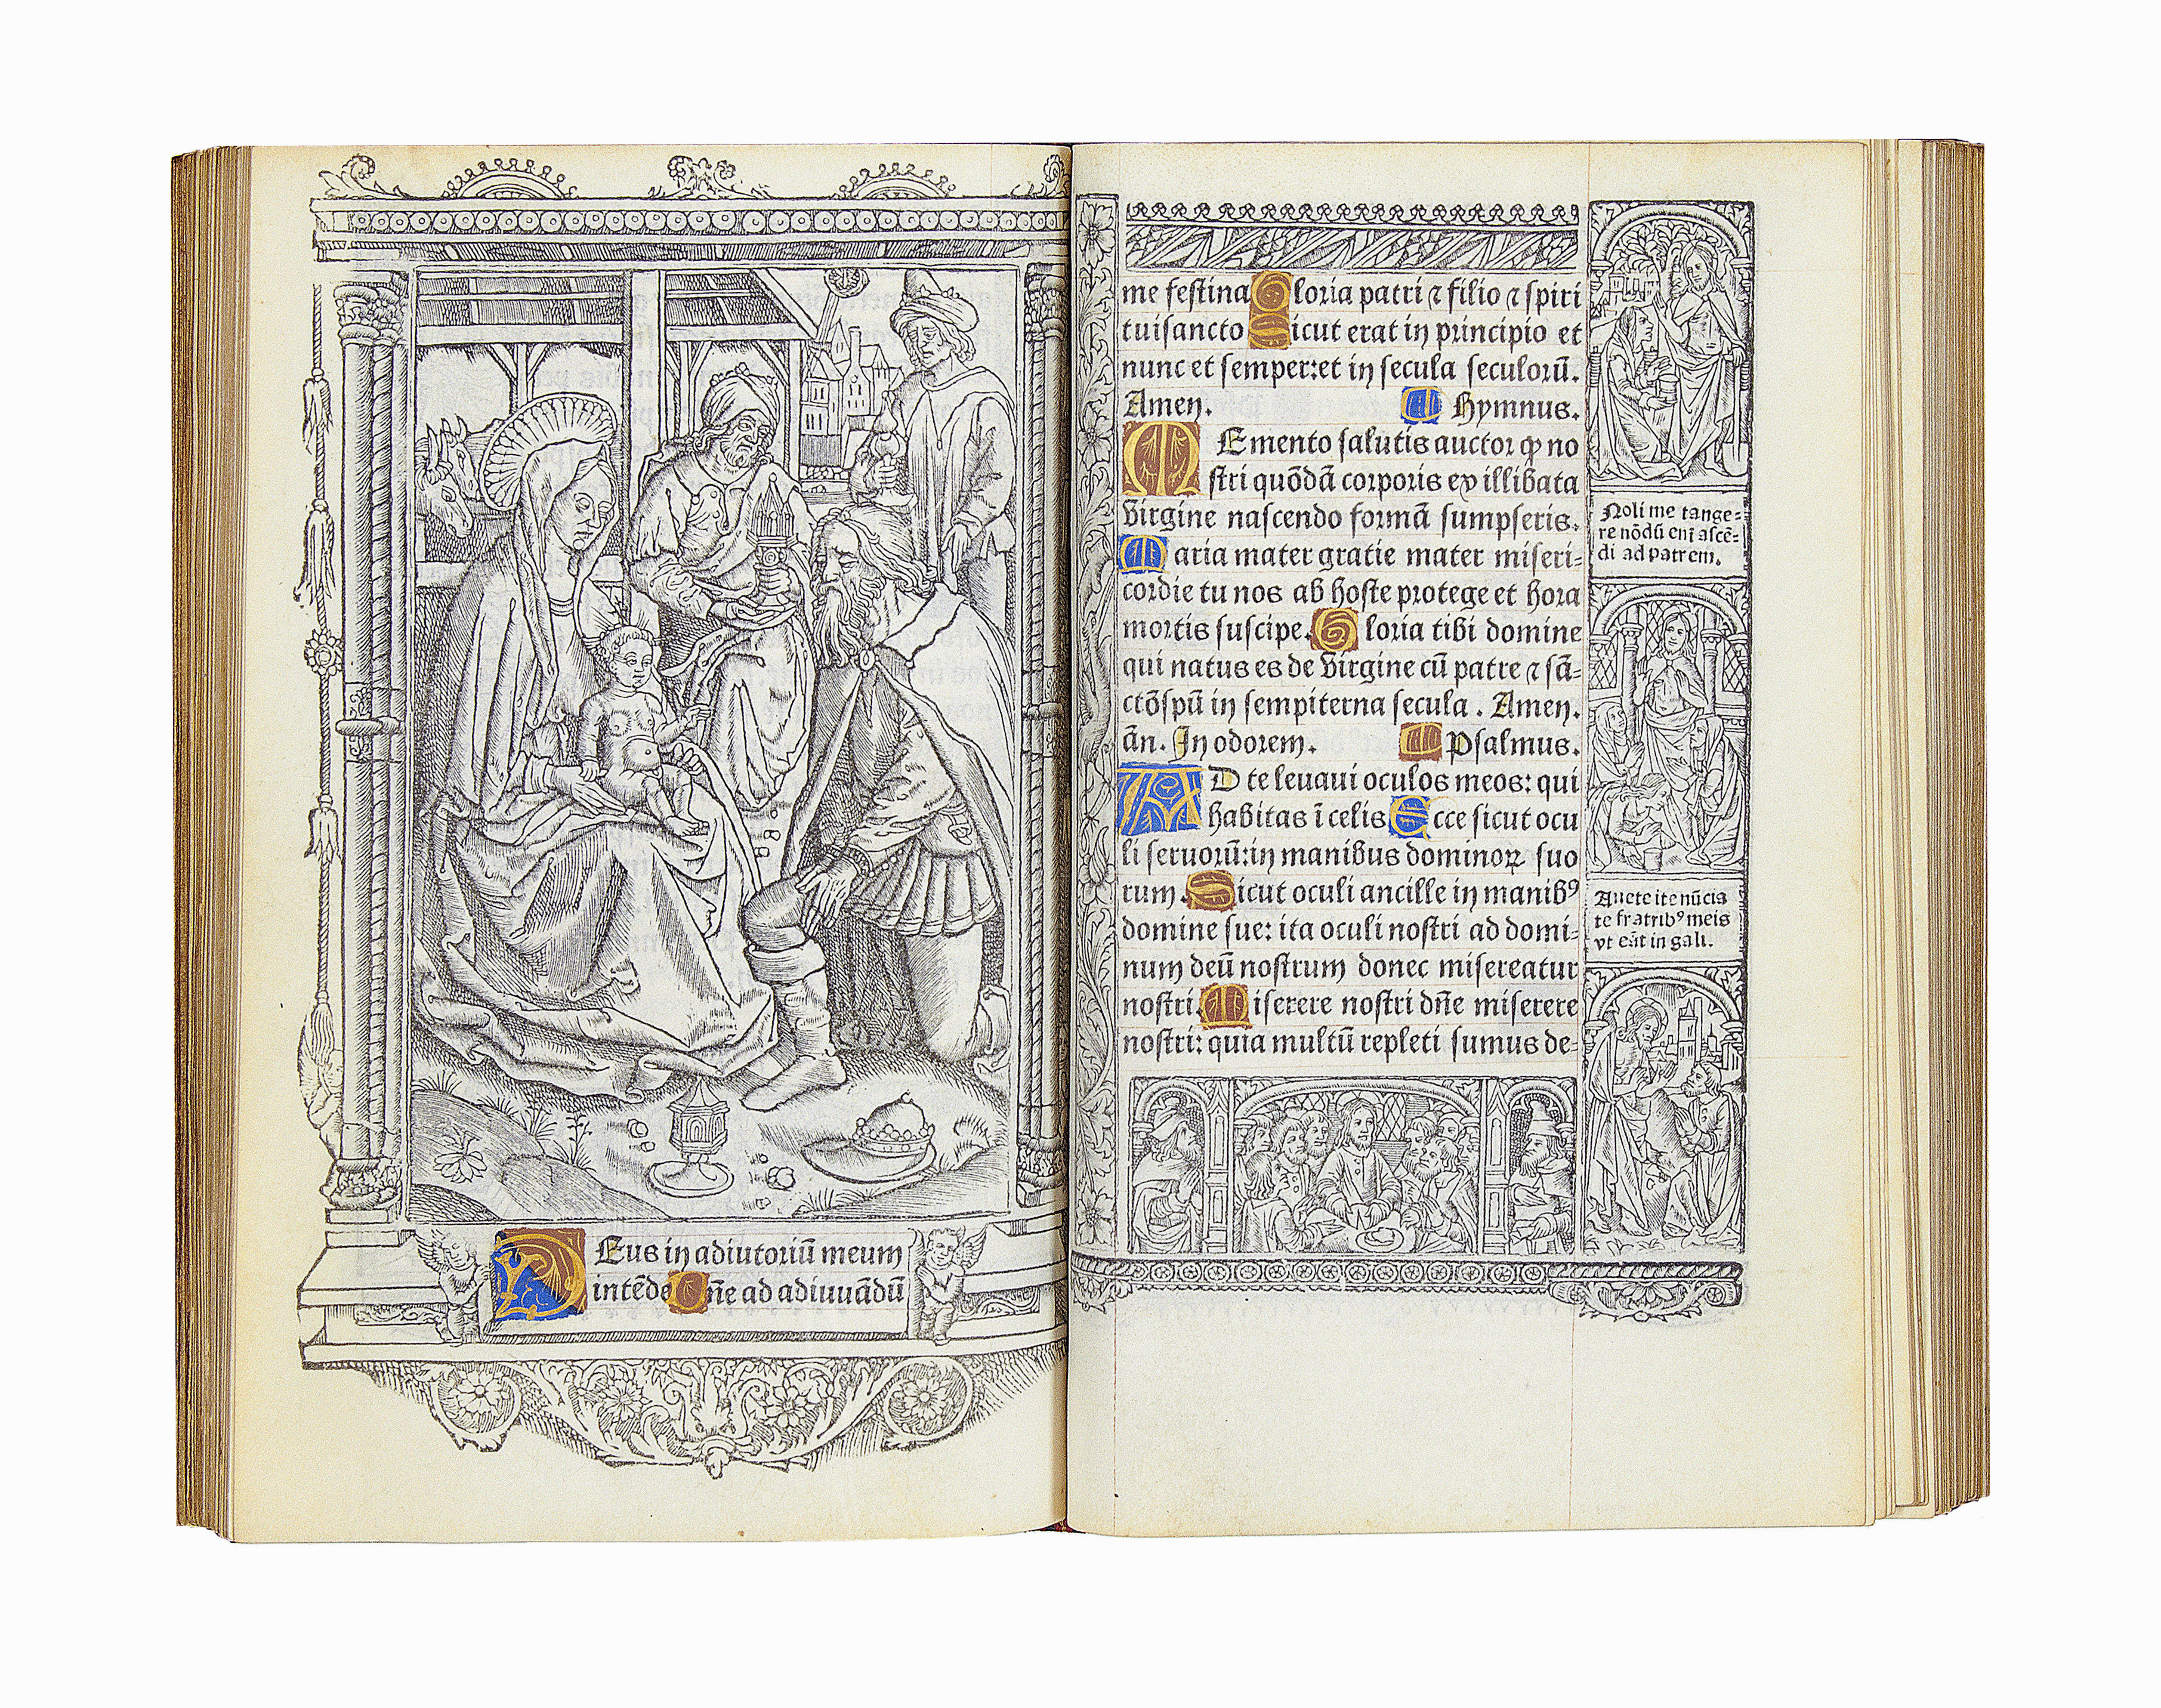 Deus in adiutoriū meum
intēde Dn̄e ad adiuuādū
me festina Gloria patri ⁊ filio ⁊ spiri
tuisancto Sicut erat in principio et
nunc et semper: et in secula seculorū.
Amen. Hymnus.
MEmento salutis auctor ꝙ no
stri quōdā corporis ex illibata
virgine nascendo formā sumpseris.
Maria mater gratie mater miseri-
cordie tu nos ab hoste protege et hora
mortis suscipe. Gloria tibi domine
qui natus es de virgine cū patre ⁊ sā-
ctōspū in sempiterna secula. Amen.
ān. In odorem. Psalmus.
AD te leuaui oculos meos: qui
habitas ī celis Ecce sicut ocu
li seruorū: in manibus dominoꝝ suo
rum. Sicut oculi ancille in manibꝰ
domine sue: ita oculi nostri ad domi-
num deū nostrum donec misereatur
nostri. Miserere nostri dn̄e miserere
nostri: quia multū repleti sumus de-
Noli me tange-
re nōdū enī ascē-
di ad patrem.
Auete ite nūcia
te fratribꝰ meis
vt eāt in gali.